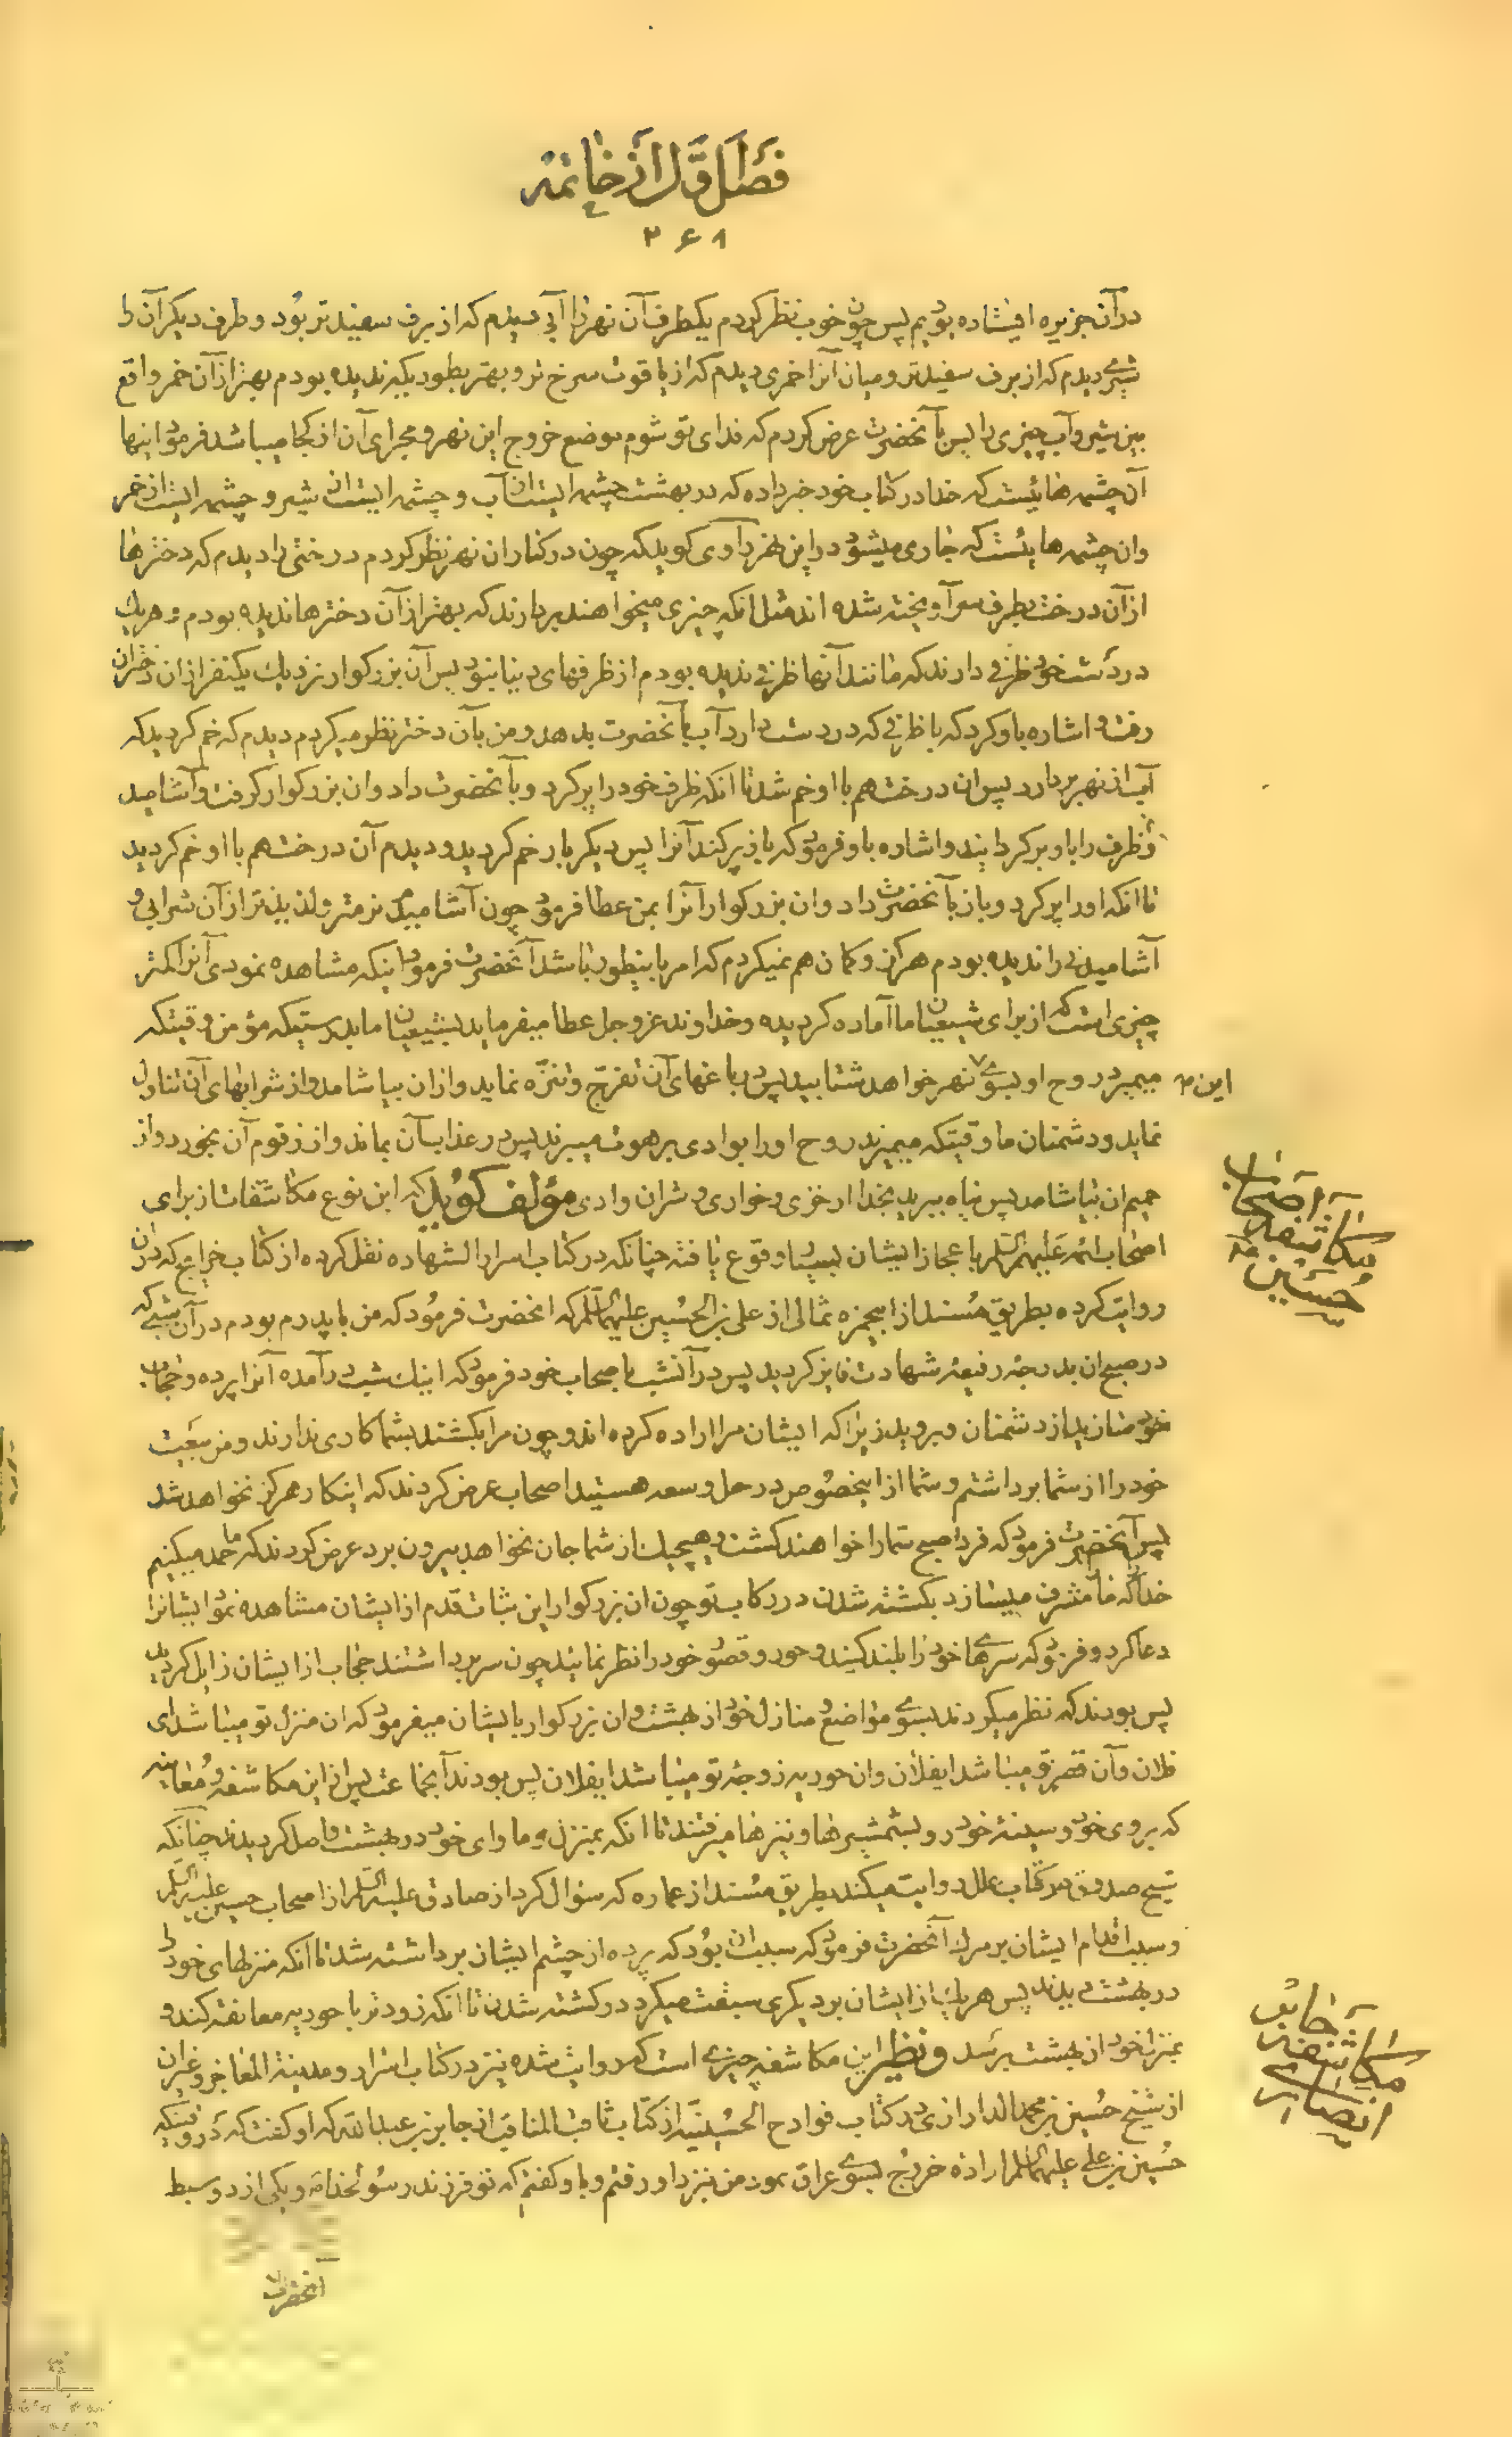 فصل اول از خاتمه
۲۶۸
در آن جزیره ایستاده بودیم پس چون خوب نظر کردم یکطرف آن نهر را آبی دیدم که از برف سفیدتر بود و طرف دیکر آن را
شیری دیدم که از برف سفیدتر و میان آنرا خمری دیدم که از یاقوت سرخ تر و بهتر بطوریکه ندیده بودم بهتر از آن خمر واقع
بین شیر و آب چیزی را پس بآنحضرت عرض کردم که فدای تو شوم موضع خروج این نهر و مجرای آن از کجا میباشد فرمود اینها
آن چشمه هائیست که خدا در کتاب خود خبر داده که در بهشت چشمه ایست از آب و چشمه ایست از شیر و چشمه ایست از خمر
وان چشمه هائیست که جاری میشود در این نهر راوی کوید که چون در کنار ان نهر نظر کردم درختی را دیدم که دخترها
از آن درخت بطرف سر آویخته شده اند مثل انکه چیزی میخواهند بردارند که بهتر از آن دخترها ندیده بودم و هریك
در دست خود ظرفی دارند که مانند آنها ظرفی ندیده بودم از ظرفهای دنیا نبود پس آن بزرکوار نزدیك یکنفر از ان دختران
رفت و اشاره باو کرد که با ظرفی که در دست دارد آب بآنحضرت بدهد و من بآن دختر نظر میکردم دیدم که خم کردید که
آب از نهر بردارد پس ان درخت هم با او خم شد تا انکه ظرف خود را پر کرد و بآنحضرت داد وان بزرکوار کرفت و آشامید
و ظرف را باو بر کردانید و اشاره باو فرمود که باز پر کند آنرا پس دیکر بار خم کردید و دیدم آن درخت هم با او خم کردید
تا انکه اورا پر کرد و باز بآنحضرت داد وان بزرکوار آنرا بمن عطا فرمود چون آشامیدم نرمتر ولذیذتر از آن شرابی و
آشامیدنی را ندیده بودم هرکز و کمان هم نمیکردم که امر باینطور باشد آنحضرت فرمود اینکه مشاهده نمودی آنرا کمتر
چیزی است که از برای شیعیان ما آماده کردیده و خداوند عز و جل عطا میفرماید بشیعیان ما بدرستیکه مؤمن وقتیکه
میمیرد روح او بسوی نهر خواهد شتابید پس در باغهای آن تفرج و تنزه نماید و از ان بیاشامد و از شرابهای آن تناول
این
نماید و دشمنان ما وقتیکه میمیرند روح اورا بوادی برهوت میبرند پس در عذاب آن بماند و از زقوم آن بخورد و از
حمیم ان بیاشامد پس پناه ببرید بخدا از خزی و خواری و شر ان وادی مؤلف کوید که این نوع مکاشفات از برای
اصحاب ائمه علیهم السلام باعجاز ایشان بسیار وقوع یافته چنانکه در کتاب اسرار الشهاده نقل کرده از کتاب خرایج که در آن
روایت کرده بطریق مسند از ابیحمزه ثمالی از علی بن الحسین علیهما السلام که انحضرت فرمود که من با پدرم بودم در آن شبی که
در صبح ان بدرجه رفیعه شهادت فایز کردید پس در آنشب باصحاب خود فرمود که اینك شب در آمده آنرا پرده و حجاب
خود سازید از دشمنان و بروید زیرا که ایشان مرا اراده کرده اند و چون مرا بکشتند بشما کاری ندارند و من بیعت
خود را از شما برداشتم و شما از اینخصوص در حل و سعه هستید اصحاب عرض کردند که اینکار هرکز نخواهد شد
پس آنحضرت فرمود که فردا صبح شما را خواهند کشت و هیچیك از شما جان نخواهد بیرون برد عرض کردند که ما حمد میکنیم
خدا که ما را مشرف میسازد بکشته شدن در رکاب تو چون ان بزرکوار این ثبات قدم از ایشان مشاهده نمود ایشانرا
دعا کرد و فرمود که سرهای خود را بلند کنید و حور و قصور خود را نظر نمائید چون سر برداشتند حجاب از ایشان زایل کردید
پس بودند که نظر میکردند بسوی مواضع و منازل خود از بهشت و ان بزرکوار بایشان میفرمود که ان منزل تو میباشد ای
فلان و آن قصر تو میباشد ایفلان وان حوریه زوجه تو میباشد ایفلان پس بودند آنجماعت پس از این مکاشفه و معاینه
که بروی خود و سینه خود رو بشمشیرها و نیزها میرفتند تا انکه بمنزل و ماوای خود در بهشت واصل کردیدند چنانکه
شیخ صدوق در کتاب علل روایت میکند بطریق مسند از عماره که سؤال کرد از صادق علیه السلام از اصحاب حسین علیه السلام
و سبب اقدام ایشان بر مرك آنحضرت فرمود که سبب ان بود که پرده از چشم ایشان برداشته شد تا انکه منزلهای خود را
در بهشت دیدند پس هریك از ایشان بر دیکری سبقت میکرد در کشته شدن تا انکه زودتر با حوریه معانقه کند و
بمنزل خود از بهشت برسد و نظیر این مکاشفه چیزی است که روایت شده نیز در کتاب اسرار و مدینة المعاجز و غیر ان
از شیخ حسین بن محمد الدارازی در کتاب فوادح الحسینیه از کتاب ثاقب المناقب از جابر بن عبدالله که او کفت که در وقتیکه
حسین بن علی علیهما السلام اراده خروج بسوی عراق نمود من بنزد او رفتم و باو کفتم که تو فرزند رسولخدا و یکی از دو سبط
آنحضرت
مکاشفه اصحاب حسین
مکاشفه جابر انصاری